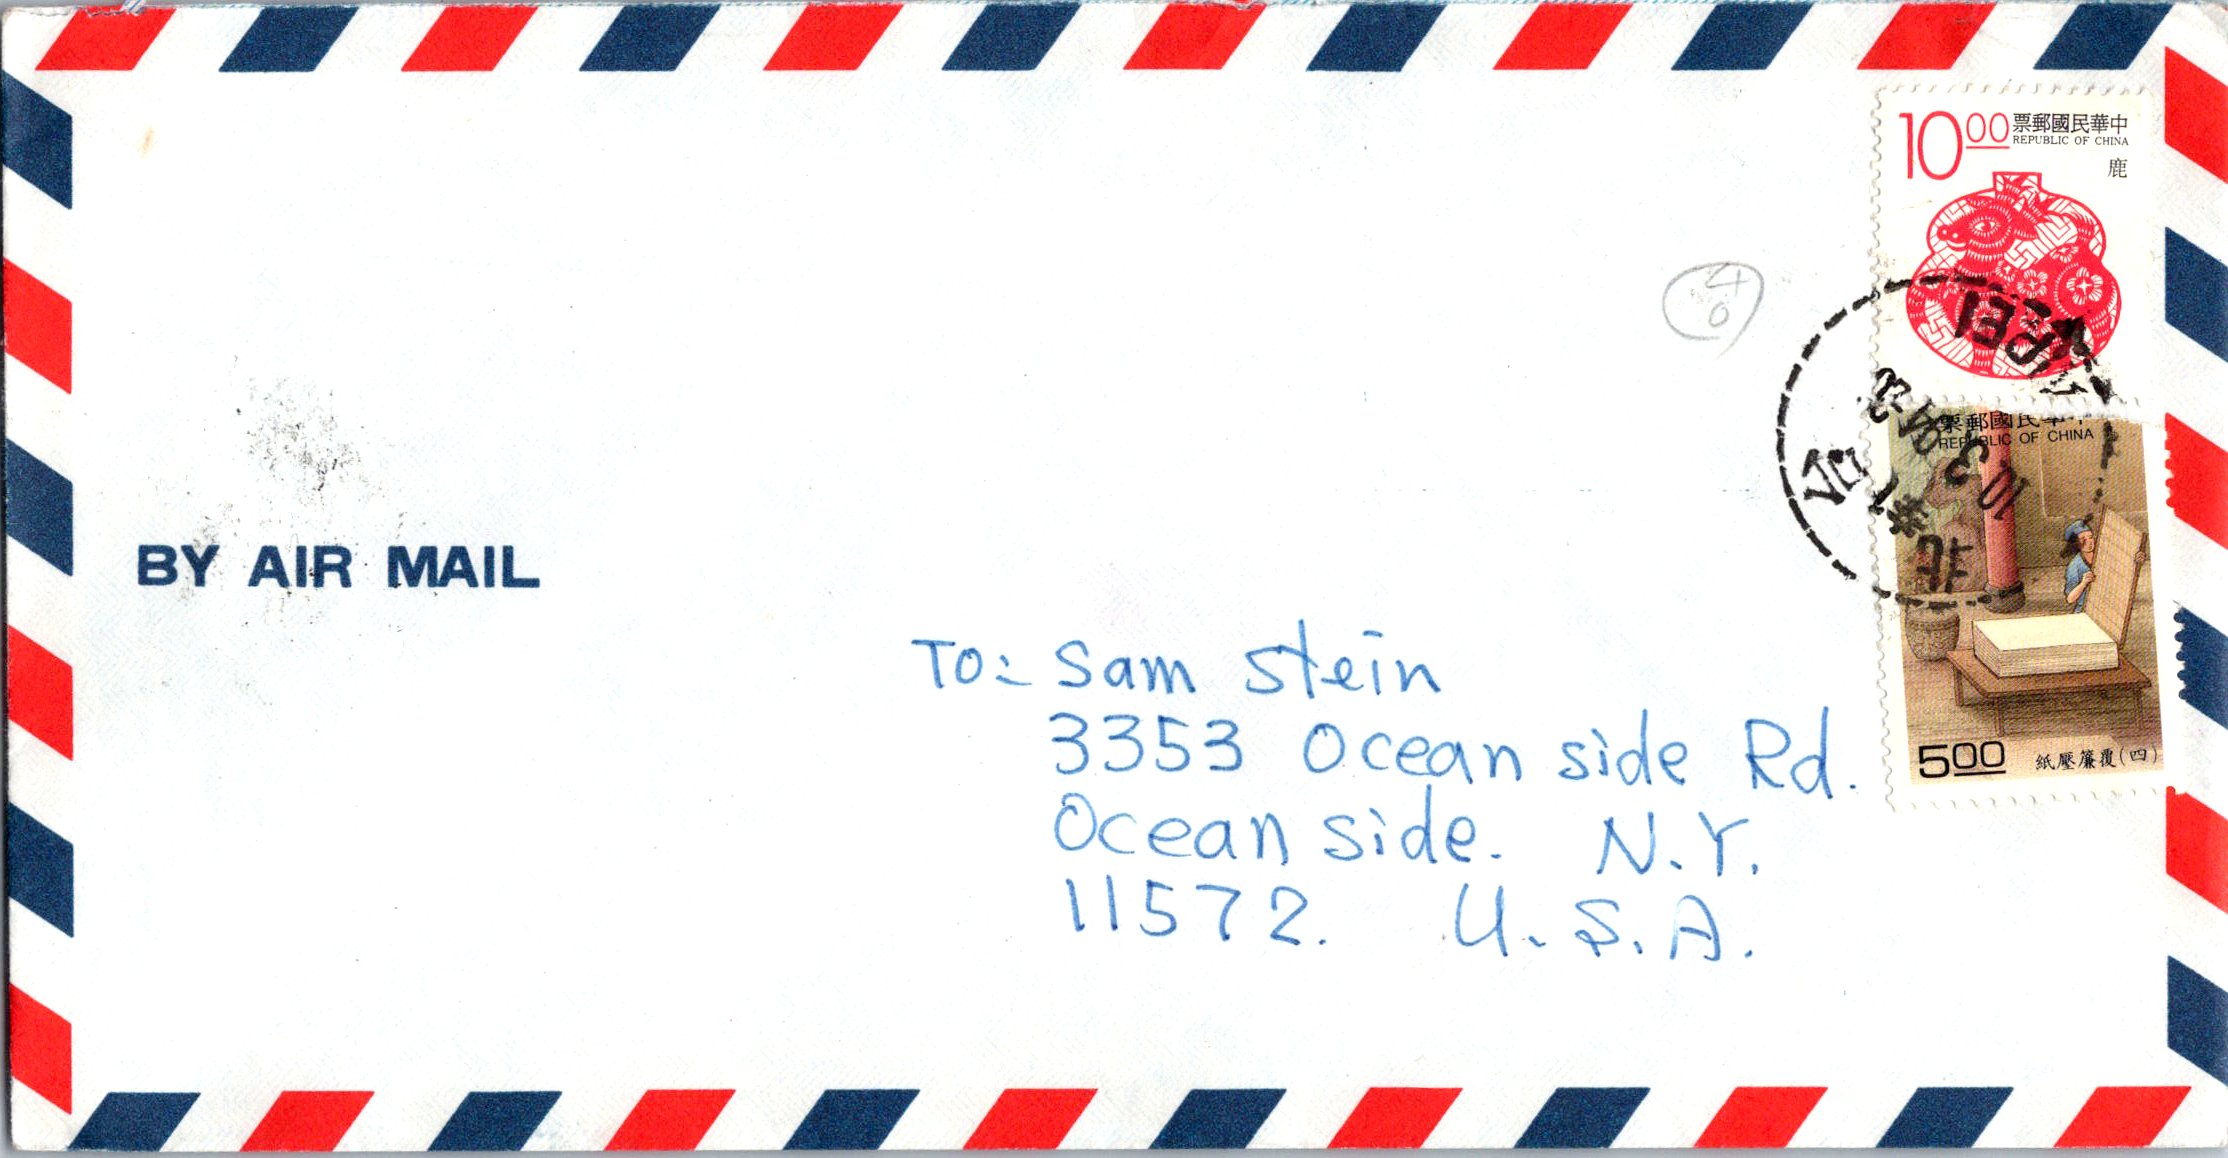 10 00 票郵國民華中
REPUBLIC OF CHINA
鹿
4
0
票郵國民華中
REPUBLIC OF CHINA
5 00 紙壓簾覆(四)
BY AIR MAIL
To: Sam Stein
3353 Ocean side Rd.
Ocean side. N.Y.
11572. U.S.A.